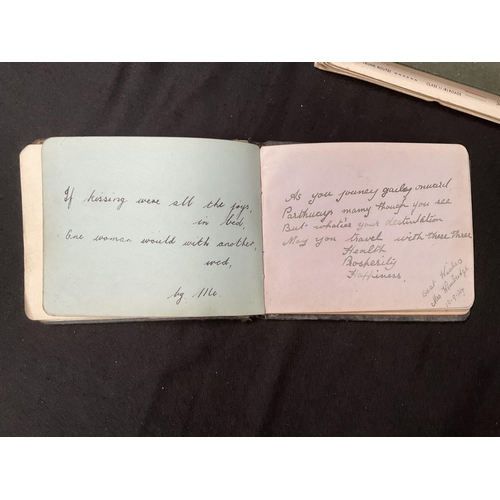 If kissing were all the joys,
in bed,
One woman would with another,
wed,
by Me.
As you jouney gailey onward
Parthways many though you see
But whatie's your destintation
May you travel with these three
Health
Prosherity
Happiness.
Best Wishes